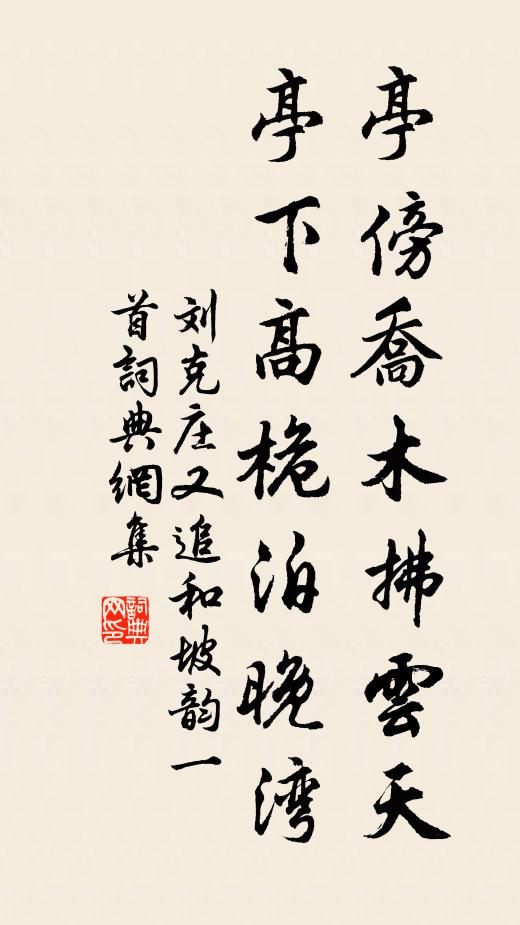 亭傍喬木拂雲天
亭下高桅泊晚湾
刘克庄又追和坡韵一
首詞典網集
詞典
网印